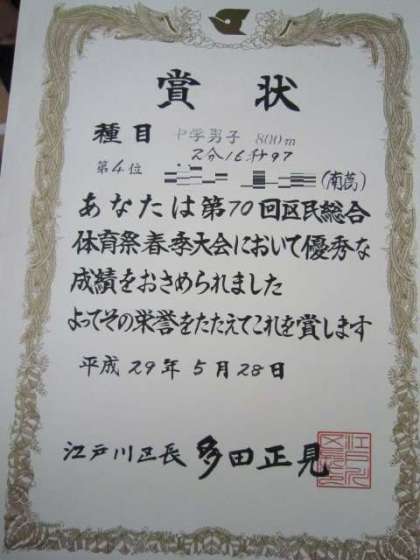 賞状
種目 中学男子 800m
2分16秒97
第4位 (南葛)
あなたは第70回区民総合
体育祭春季大会において優秀な
成績をおさめられました
よってその栄誉をたたえてこれを賞します
平成29年5月28日
江戸川区長 多田正見